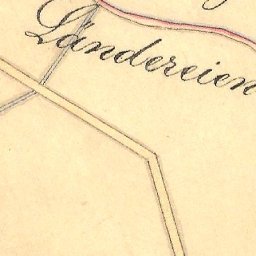 Ländereien